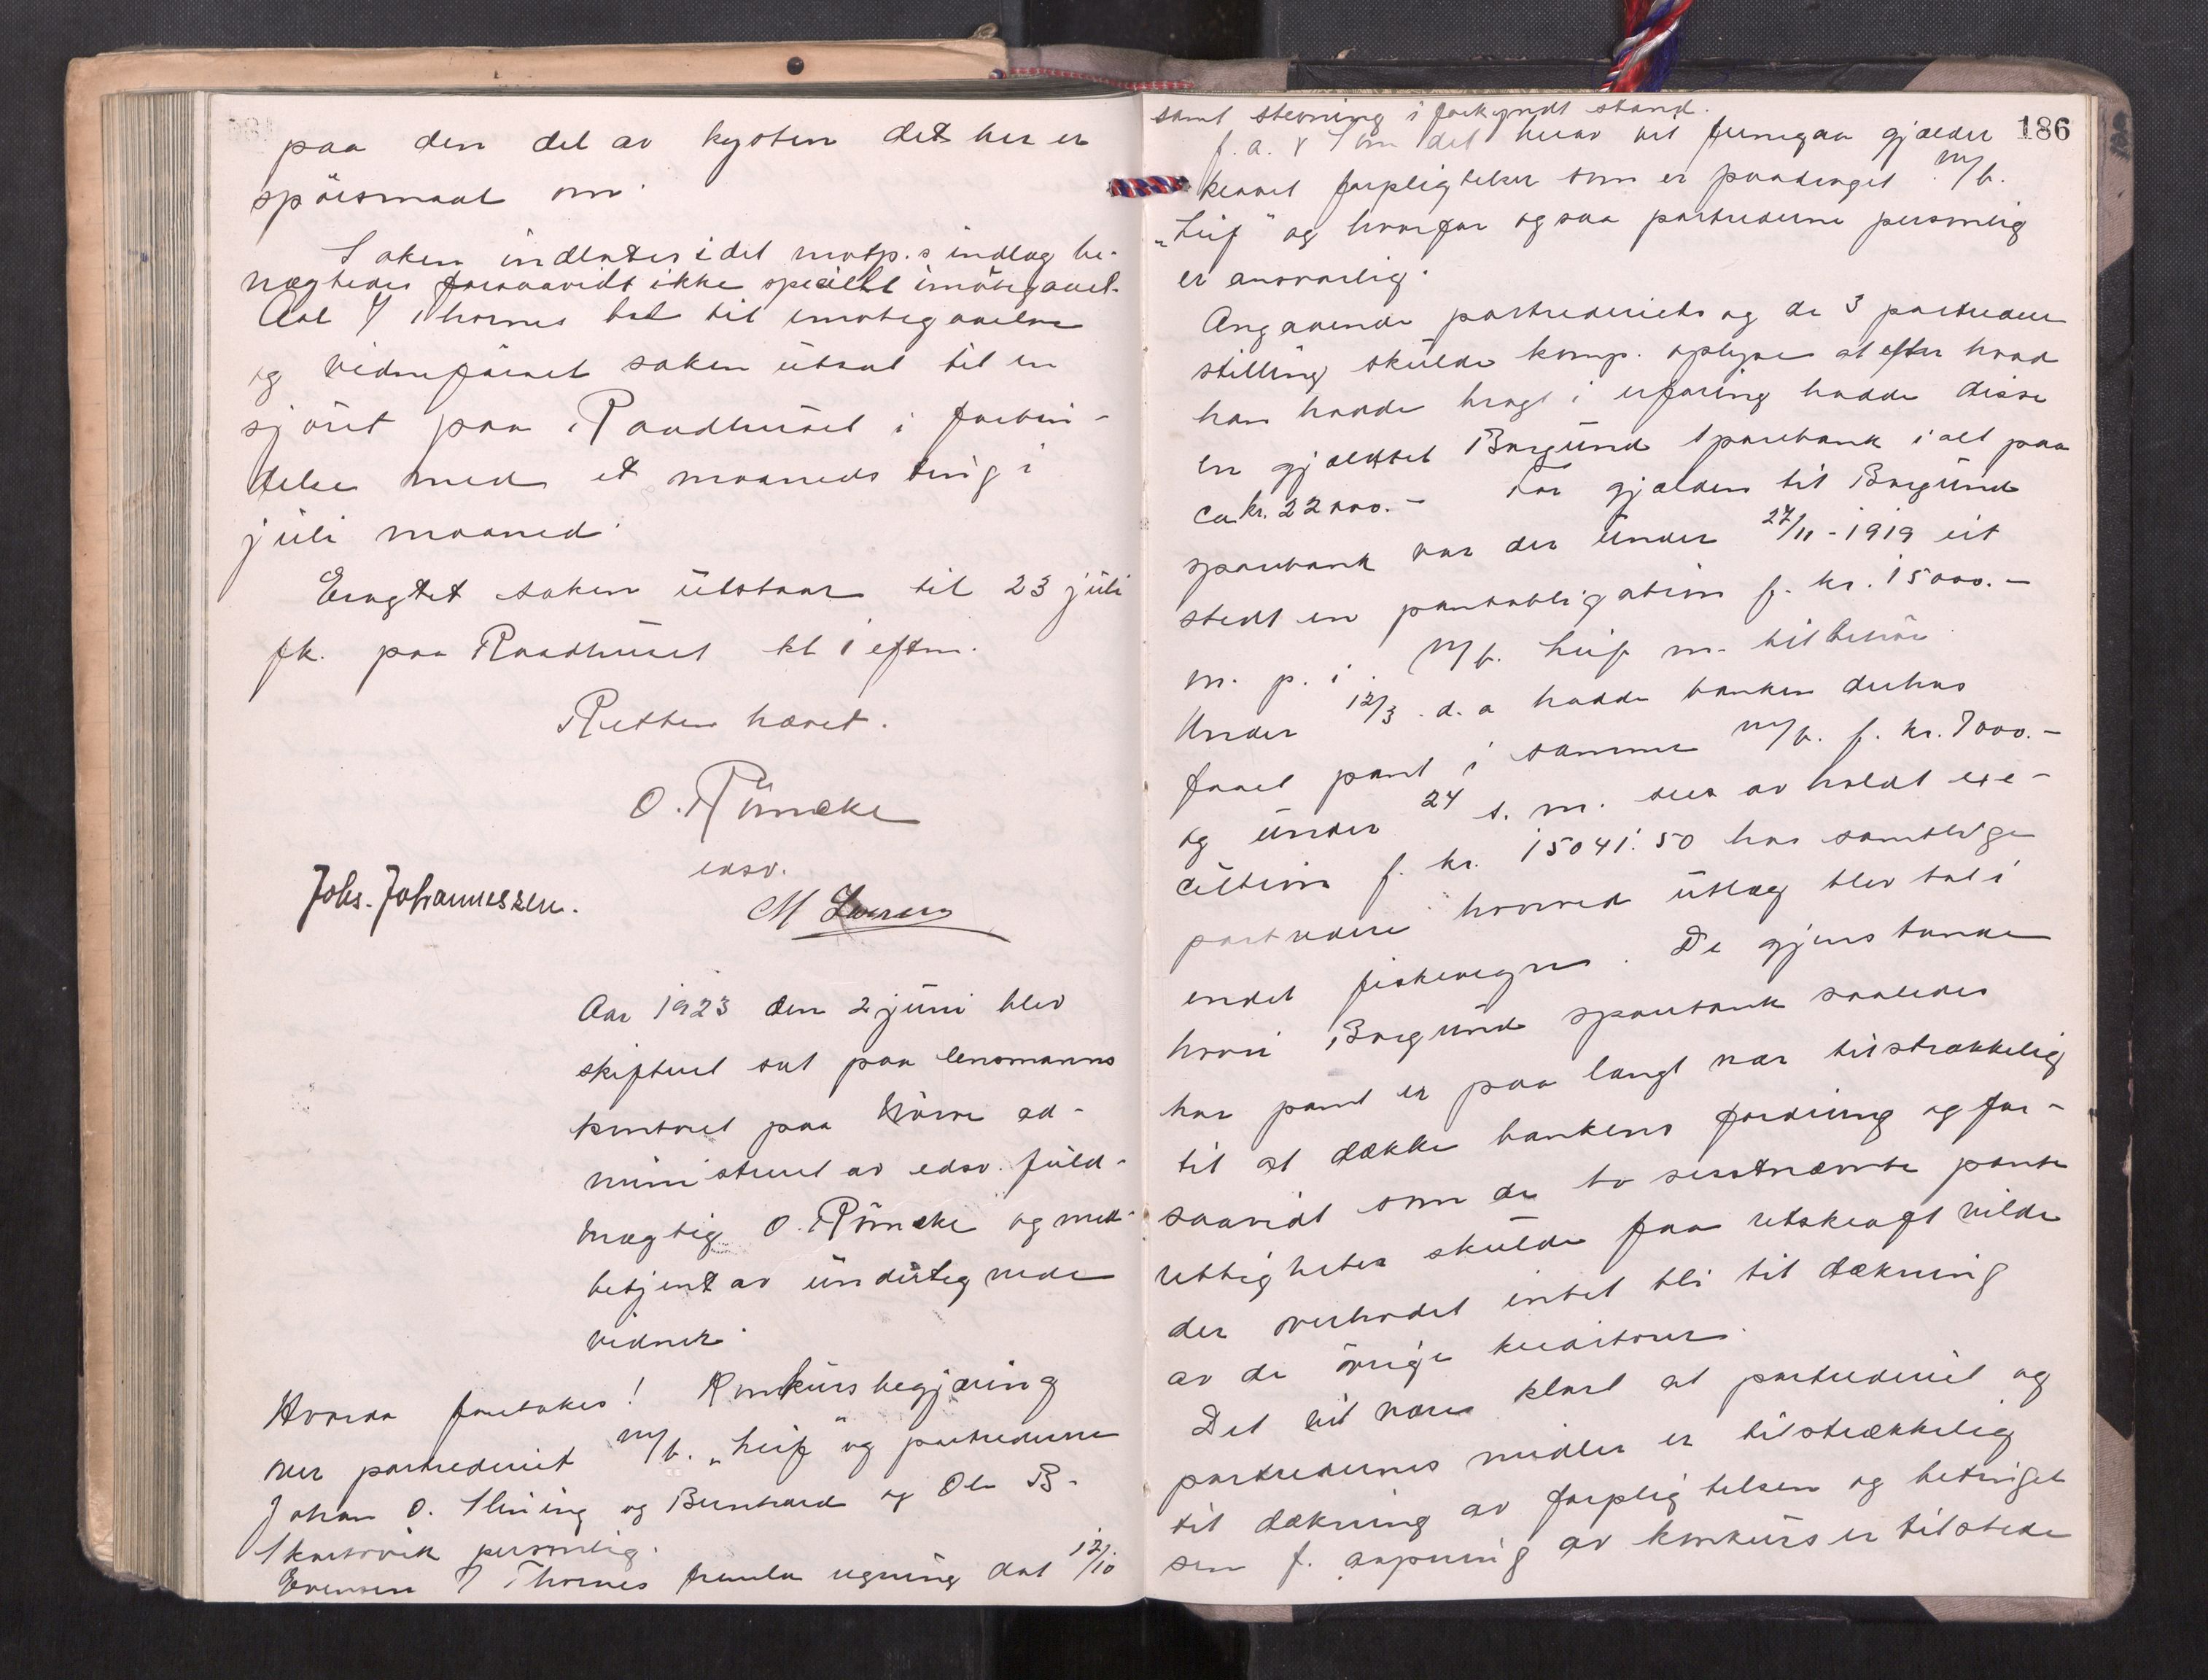 paa den del av kysten det her er
spörsmaal om.
Saken indlates idet motp.s indlæg be-
nægtedes forsaavidt ikke specielt imötegaaet.
Adv. Thornes bad til imötegaaelse
og vidneförsel saken utsat til en
sjöret paa Raadhuset i forbin-
delse med et maaneds ting i
juli maaned.
Eragtet saken utstaar til 23 juli
fk. paa Raadhuset kl 1 eftm.
Retten hævet.
O. Römcke
edsv.
Johs. Johannessen. M Iversen
Aar 1923 den 2 juni blev
skifteret sat paa lensmanns
kontoret paa Nörve ad-
ministreret av edsv. fuld-
mægtig O. Römcke og med-
betjent av undertegnede
vidner.
Hvorda foretokes! Konkursbegjæring
over partrederiet m/b. "Leif" og partrederne
Johan O. Slining og Bernhard og Ole B.
Skarsvik personlig.
Thornes fremla regning dat 12/10
186
samt stevning i forkyndt stand.
f. a. v Som det herav vil fremgaa gjælder
kravet forpligtelser som er paadraget m/b.
"Leif" og hvorfor ogsaa partrederne personlig
er ansvarlig.
Angaaende partrederiets og de 3 partredere
stilling skulde komp. oplyse at efter hvad
han hadde bragt i erfaring hadde disse
en gjæld til Borgund Sparebank i alt paa
ca kr. 22000.- For gjælden til Borgund
sparebank var der under 27/11-1919 ut
stedt en panteobligation f. kr. 15000.-
m. p. i m/b. Leif m. tilbehör
Under 12/3 d. a hadde banken derhos
faaet pant i samme m/b. f. kr. 7000.-
og under 24 s. m. av holdt exe-
cution f. kr. 15041.50 hos samtlige
partredere hvorved utlæg blev tat i
endel fiskevegn. De gjenstande
hvori Borgund sparebank saaledes
har pant er paa langt nær tilstrækkelig
til at dække bankens fordring og for-
saavidt som de to sisstnævnte pante
rettigheter skulde faa retskraft vilde
der overhodet intet bli til dækning
av de övrige kreditorer.
Det vil være klart at partrederiet og
partredernes midler er tilstrækkelig
til dækning av forpligtelsen og betingel
sen f. aapning av konkurs er tilstede